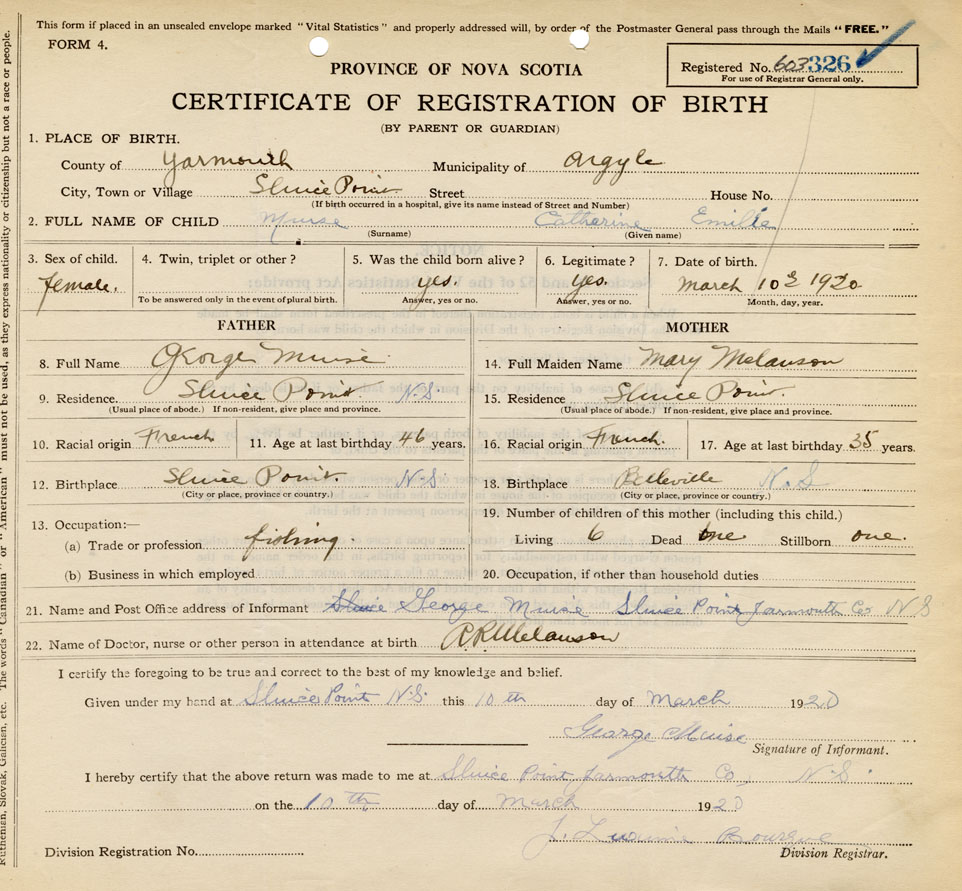 This form if placed in an unsealed envelope marked "Vital Statistics" and properly addressed will, by order of the Postmaster General pass through the Mails "FREE."
FORM 4.
PROVINCE OF NOVA SCOTIA
Registered No. 603326
For use of Registrar General only.
CERTIFICATE OF REGISTRATION OF BIRTH
(BY PARENT OR GUARDIAN)
1. PLACE OF BIRTH.
County of Yarmouth Municipality of Argyle
City, Town or Village Sluice Point Street House No.
(If birth occurred in a hospital, give its name instead of Street and Number)
2. FULL NAME OF CHILD Muise Catherine Emilie
(Surname) (Given name)
3. Sex of child. 4. Twin, triplet or other? 5. Was the child born alive? 6. Legitimate? 7. Date of birth.
female. yes. yes. March 10th 1920
To be answered only in the event of plural birth. Answer, yes or no. Answer, yes or no. Month, day, year.
FATHER MOTHER
8. Full Name George Muise 14. Full Maiden Name Mary Melanson
9. Residence. Sluice Point. N.S 15. Residence Sluice Point.
(Usual place of abode.) If non-resident, give place and province. (Usual place of abode.) If non-resident, give place and province.
10. Racial origin French 11. Age at last birthday 46 years. 16. Racial origin French. 17. Age at last birthday 35 years.
12. Birthplace Sluice Point. N.S. 18. Birthplace Belleville N.S
(City or place, province or country.) (City or place, province or country.)
13. Occupation:— 19. Number of children of this mother (including this child.)
(a) Trade or profession fishing. Living 6 Dead one Stillborn one.
(b) Business in which employed 20. Occupation, if other than household duties
21. Name and Post Office address of Informant Sluice George Muise Sluice Point Yarmouth Co N S
22. Name of Doctor, nurse or other person in attendance at birth Melanson
I certify the foregoing to be true and correct to the best of my knowledge and belief.
Given under my hand at Sluice Point N.S. this 10 th day of March 1920
George Muise
Signature of Informant.
I hereby certify that the above return was made to me at Sluice Point Yarmouth Co, N.S.
on the 10 th day of March 1920
J. Bourque
Division Registration No. Division Registrar.
Ruthenian, Slovak, Galician, etc. The words "Canadian" or "American" must not be used, as they express nationality or citizenship but not a race or people.